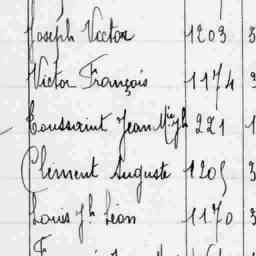 Joseph Victor 1203 3
Victor François 1174 3
Toussaint Jean M. 221 1
Clément Auguste 1205 3
Louis Jh Léon 1170 3